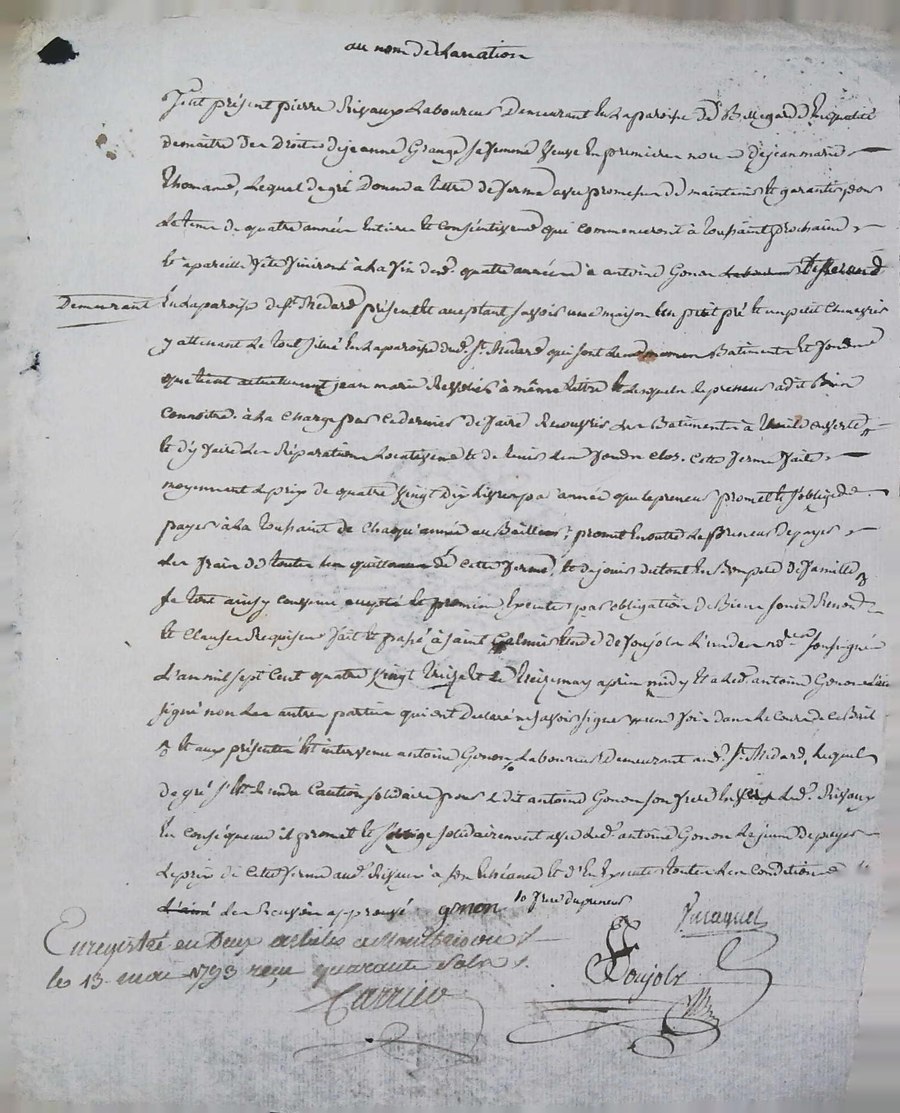 au nom de la nation
fut présent pierre Rivaux Laboureur Demeurant En la paroisse de Bellegarde En qualité
de maître des Droits de jeanne Grange sa femme veuve En premieres noces de jean marie
Thomand, Lequel de gré Donne à titre de ferme avec promesse de maintenir Et garantir pour
Le tems de quatre années Entieres Et Consécutives qui commenceront à Toussaint prochaine
Et à pareille fête finiront à La fin desd. quatre années à antoine Gonon
Demeurant En la paroisse de St. Medard présent Et acceptant savoir une maison Un petit pré Et un petit Chenevier
y attenant Le tout situé En la paroisse dud. St. Medard qui sont Batiments Et fonds
que tient actuellement jean marie à même titre Et Lesquels Le preneur a dit Bien
Connoitre. à La Charge par Ce dernier de faire Recouvrir Les Batiments à
Et d'y faire Les Réparations Locatives Et de tenir Les fonds Clos. Cette ferme faite
moyennant Le prix de quatre Vingt Dix Livres par année que Le preneur promet Et s'oblige de
payer à La Toussaint de Chaque année au Bailleur; promet En outre Le Preneur de payer
Les frais de toutes Les de Cette ferme, Et de jouir du tout En Bon pere De famille
Le tout ainsy Convenu accepté Et promis Executer par obligation de Biens soumis Renon.
Et Clauses Requises fait Et passé à Saint Galmier Etude de Poujolx L'un des notres. soussignés
L'an mil sept Cent quatre Vingt Treize Et Le Treize may après midy Et a Led. antoine Gonon
signé non Les autres parties qui ont Declaré ne savoir signer une fois dans Le Cours de Ce Bail
Et aux présentes Est intervenu antoine Gonon Laboureur Demeurant aud. St. Medard, Lequel
de gré s'Est Rendu Caution solidaire pour Led it antoine Gonon son frere Envers Led. Rivaux
En Conséquence il promet Et s'oblige solidairement avec Led. antoine Gonon Le jeune De payer
Le prix de Cette ferme aud. Rivaux à son Echéance Et d'En Executer toutes Les Conditions
approuvé gonon frere du preneur
Poujolx
Enregistré en Deux articles a Montbrison
le 13 mai 1793 reçu quarante Sols